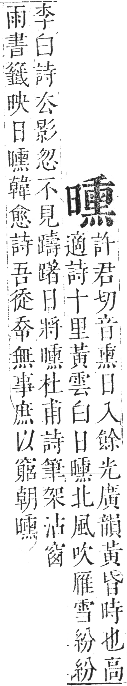 曛許君切音熏日入餘光廣韻黃昏時也高
適詩十里黃雲白日曛北風吹雁雪紛紛
李白詩公影忽不見躊躇日將曛杜甫詩筆架沾窗
雨書籤映日曛韓愈詩吾從奉無事庶以窮朝曛